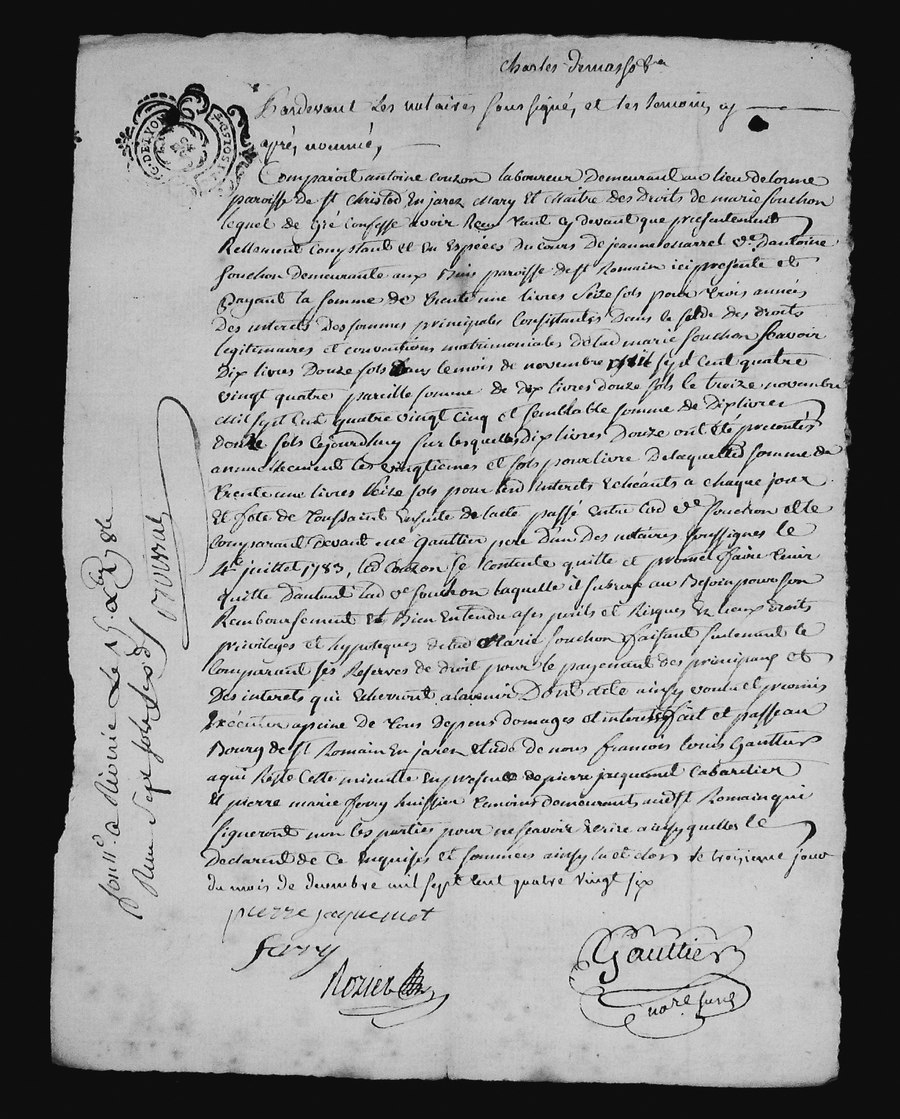 Charles Demasso
G. DE LYON
Pardevant Les notaires soussigné, et les temoins cy
après nommés,
Comparoit antoine couzon laboureur Demeurant au lieu delorme
paroisse de St Christod Enjarez Mary Et Maitre des Droits de marie souchon
lequel de Gré Confesse avoir Receu tant cy devant que presentement
Reellement Comptant et En Espèces Du cours De jeanne ve D'antoine
souchon demeurante aux paroisse de St Romain ici presente et
payant la somme de trente une livres Seize sols pour trois années
Des interets Des sommes principales Consistantes Dans le solde des droits
legitimaires et conventions matrimoniales de lad marie souchon Scavoir
Dix livres Douze sols Dans le mois de novembre Mil sept cent quatre
vingt quatre pareille somme de dix livres douze sols le treize novembre
Mil sept cent quatre vingt cinq et semblable somme de Dix livres
douze sols cejourdhuy sur lesquelles Dix livres Douze ont été precontés
annuellement les vingtiemes et sols pour livre De laquelle somme de
trente une livres Seize sols pour lesd interets Echeants a chaque jour
Et fete de Toussaint Ensuite de lacte passé entre lad ve souchon et le
Comparant devant me Gauttier pere L'un Des notaires soussignes le
4e juillet 1783, led Couzon se Contente quitte et promet faire tenir
quitte D'autant lad ve souchon laquelle il subroge au Besoin pour son
Remboursement et Bien Entendu a ses perils et Risques En lieux Droits
privileges et hypoteques de lad Marie souchon faisant surtenant le
Comparant ses Reserves de droit pour le payement des principaux et
Des interets qui Echerront alavenir Dont acte ainsy voulu et promis
Executer apeine de tous Depens domages et interets fait et passé au
Bourg de St Romain En jarez Etude de nous francois louis Gauttier
a qui Reste Cette minute En presence de pierre jacquemot Cabartier
Et pierre marie ferry huissier temoins demeurants aud St Romain qui
signeront non les parties pour ne scavoir Ecrire ainsy quelles le
Declarent de Ce Enquises et sommées ainsy lu et clos le troisieme jour
du mois de decembre mil sept cent quatre vingt six
pierre jaquemot
ferry
Rozier
Gauttier
nore
Con lle a Riverie Le 15 Xbre 1786
Reçu Sept sols six d